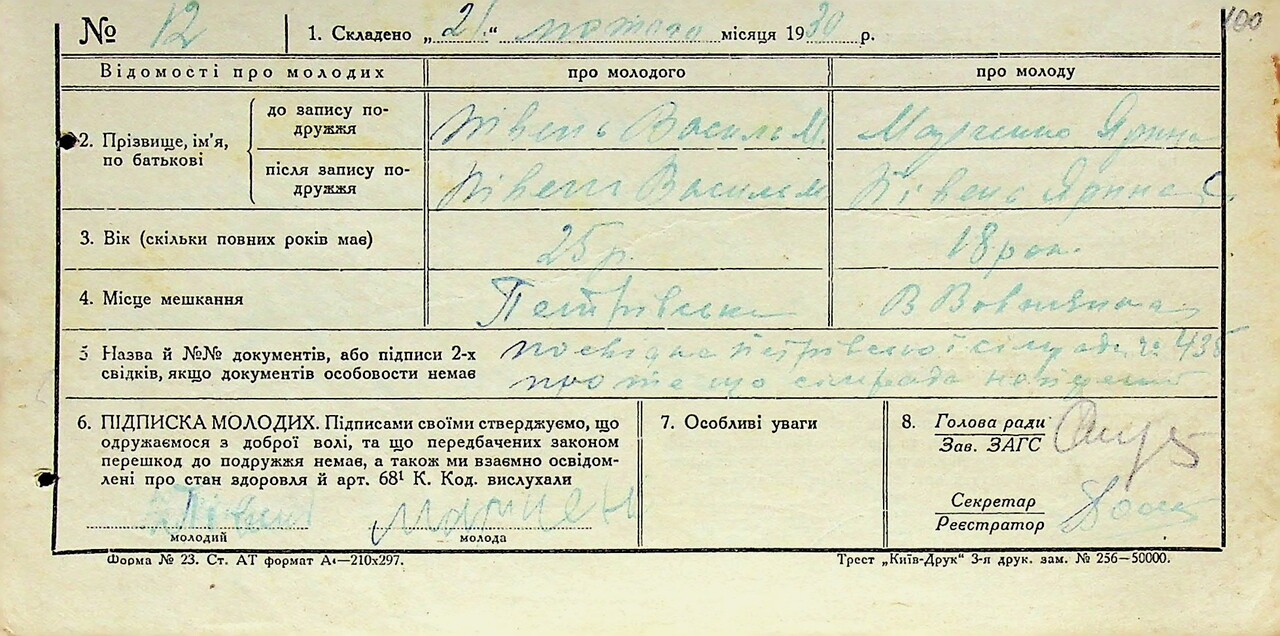 № 12 1. Складено „21“ лютого місяця 1930 р.
100
Відомості про молодих про молодого про молоду
2. Прізвище, ім'я, по батькові
до запису подружжя Півень Василь М. Марченко Ярина
після запису подружжя Півень Василь М Півень Ярина С.
3. Вік (скільки повних років має) 25 р. 18 рок.
4. Місце мешкання Петрівська В
5 Назва й №№ документів, або підписи 2-х посвідка Петрівської сільради № 435
свідків, якщо документів особовости немає про те що сільрада
6. ПІДПИСКА МОЛОДИХ. Підписами своїми стверджуємо, що
одружаємося з доброї волі, та що передбачених законом
перешкод до подружжя немає, а також ми взаємно освідом-
лені про стан здоровля й арт. 68¹ К. Код. вислухали
Півень Марчен
молодий молода
7. Особливі уваги
8. Голова ради
Зав. ЗАГС
Секретар
Реєстратор
Форма № 23. Ст. АТ формат А₄—210х297. Трест „Київ-Друк“ 3-я друк. зам. № 256—50000.